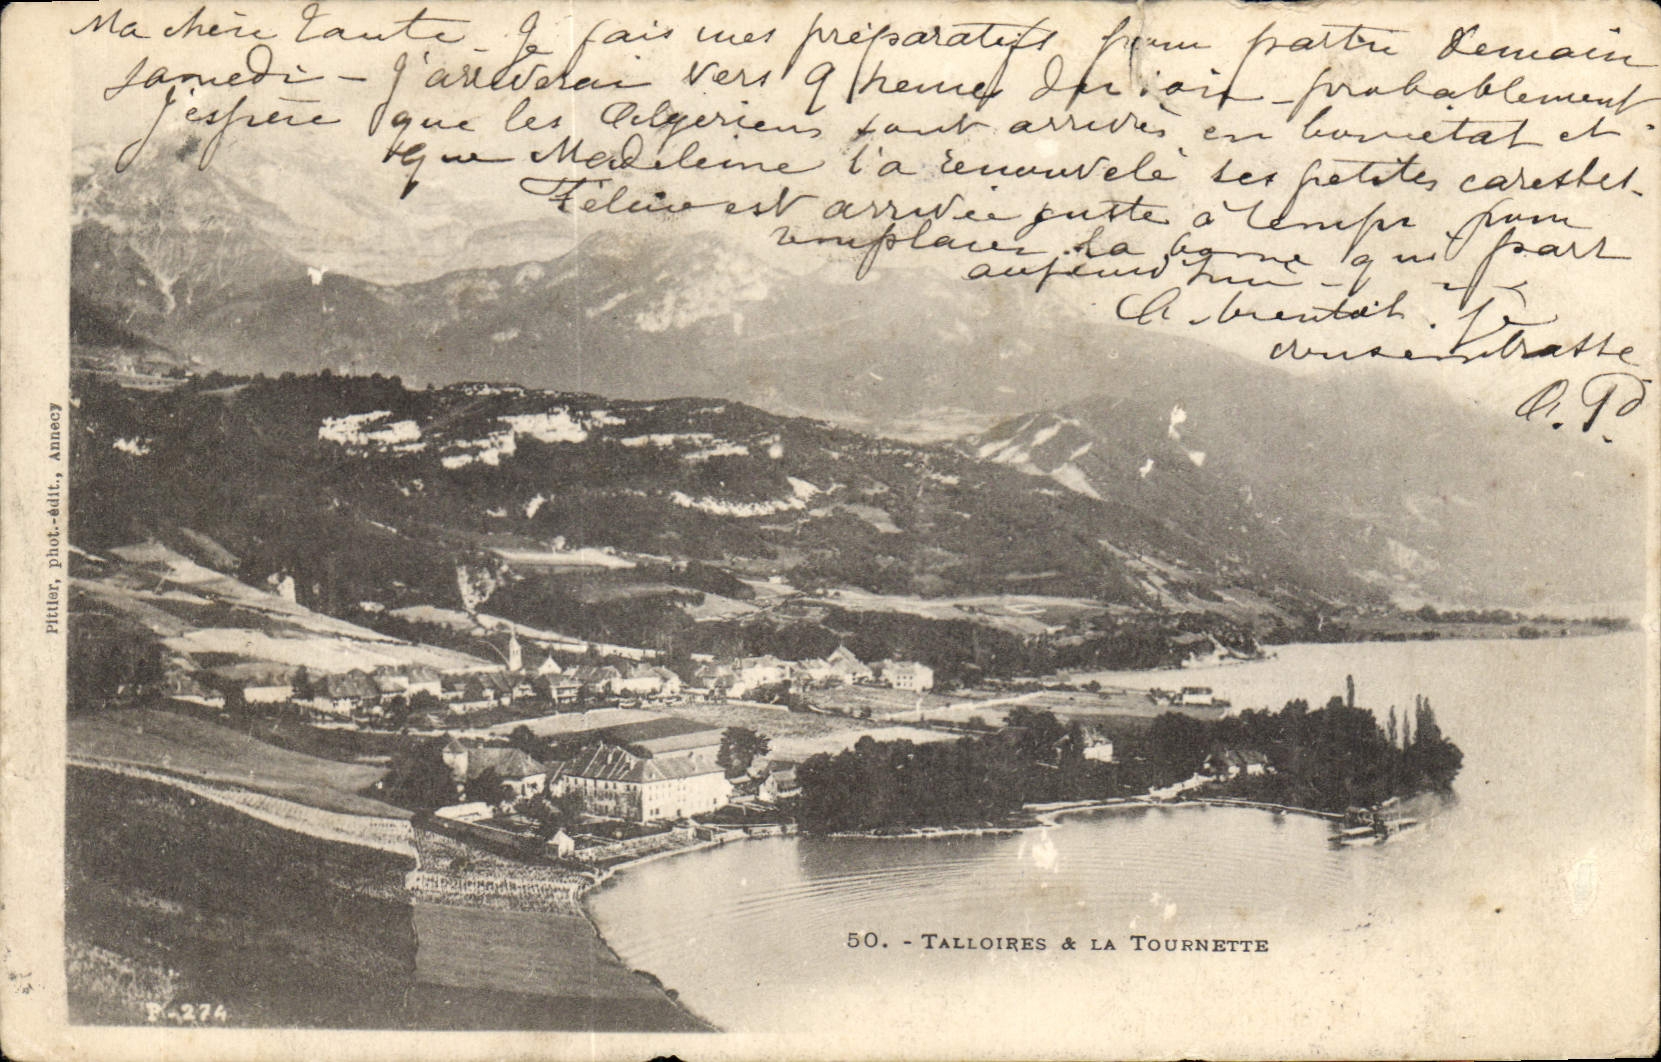 Ma chère Tante. Je fais mes préparatifs pour partir demain
samedi – j'arriverai vers 9 heures du soir – probablement.
J'espère que les Algériens sont arrivés en bon état et
que Madeleine t'a renouvelé ses petites caresses.
Féline est arrivée juste à temps pour
remplacer la bonne qui part
aujourd'hui –
A bientôt. Je
vous embrasse
A. P.
Pittier, phot.-édit., Annecy
50. - TALLOIRES & LA TOURNETTE
P-274